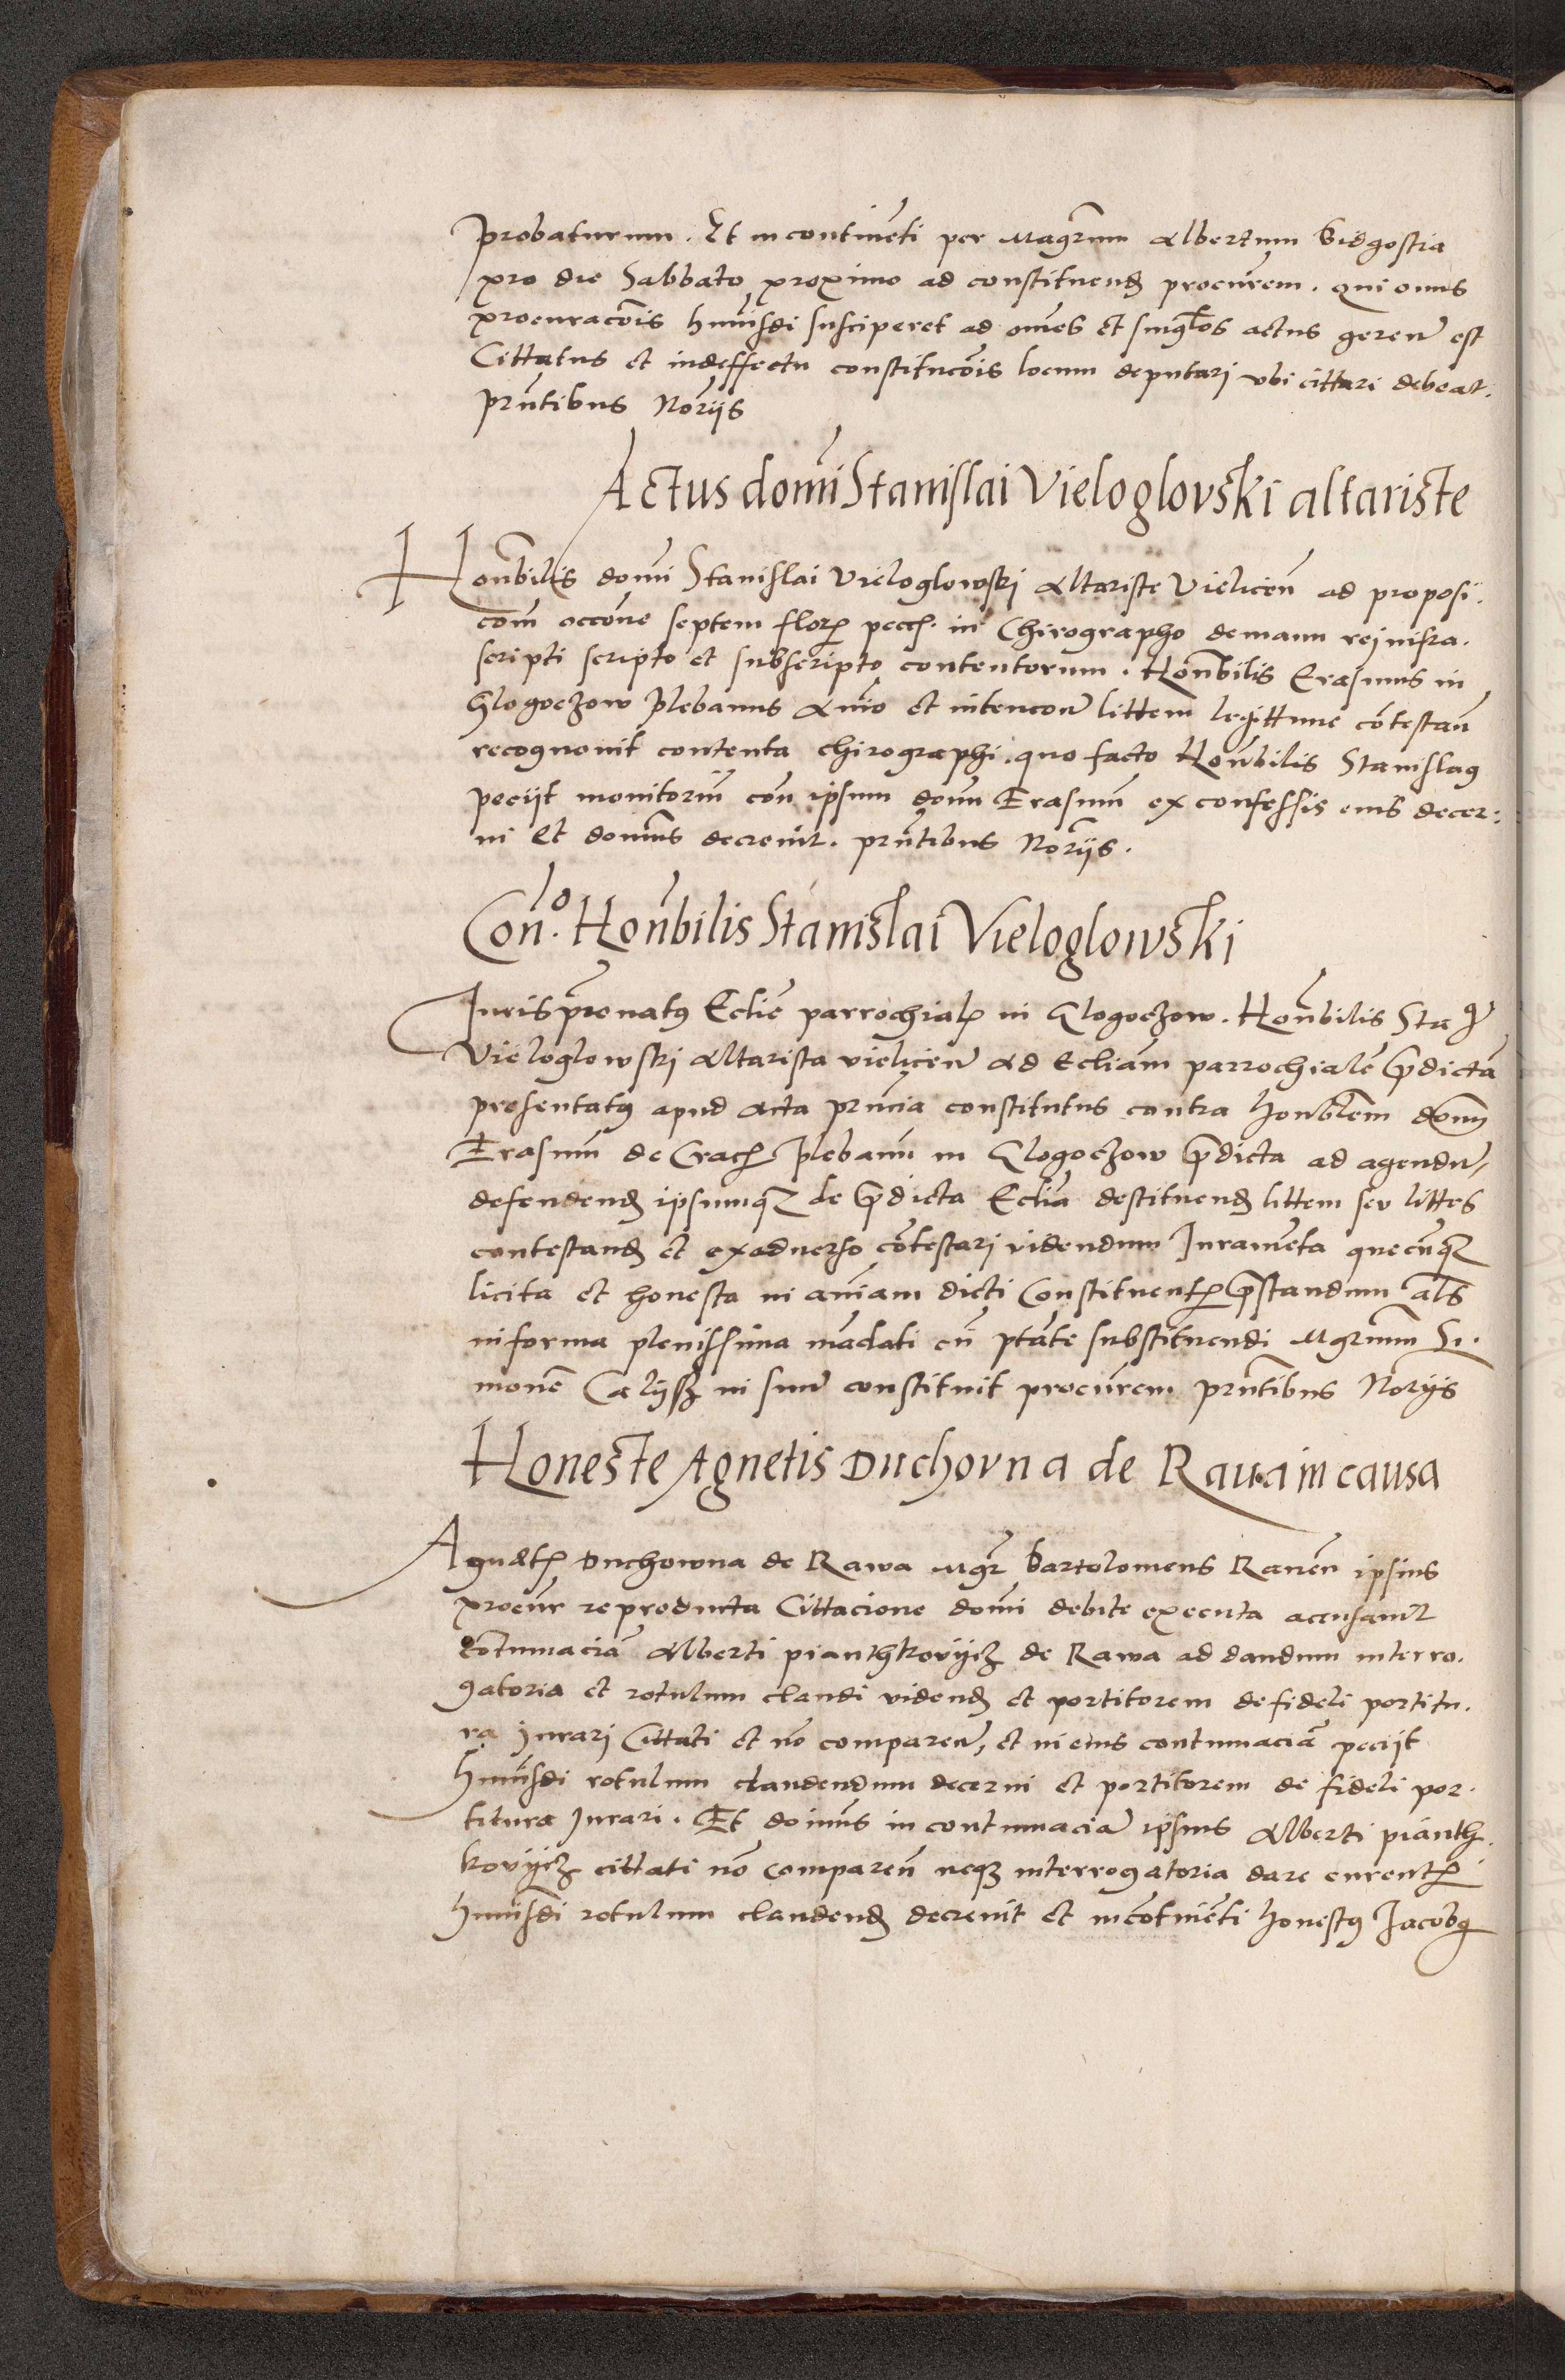 probaturum. Et incontinẽti per Magr̃um Albertum Bidgostia
pro die Sabbato proximo ad constituend procur̃em. qui onus
procuracõis huiusdi susciperet ad om̃es et singl̃os actus geren̄ est
Cittatus et indeffectu constitucõis locum deputarj vbi cittari debeat.
pñtibus Norĩjs
Actus domĩ Stanislai Vieloglovski altariste
Honr̃abilis domĩ Stanislai Vieloglowskj Altariste Vielicen̄ ad proposi.
com̃ occõne septem flor peccũ. in Chirographo demanu rej infra.
scripti scripto et subscripto contentorum. Hon̄bilis Erasmus in
Glogoczow Plebanus Anĩo et intencõne littem legittime cõtestan̄
recognouit contenta chirographi. quo facto Hon̄bilis Stanislaus
peciit monitoriũ con̄ ipsum domñ Erasmũ ex confessis eius decer:
ni Et domñs decreuit. pñtibus Norĩjs.
Con.lo Hon̄bilis Stanislai Vieloglowski
Jurispr̃onatus Ecl̃ie parrochialis in Glogoczow. Hon̄bilis Sta⁹
Vieloglowskj Altarista vielicen̄ ad Ecl̃iam parrochialẽ p̃dictã
presentatus apud Acta pñcia constitutus contra hon̄bilem domñ
Erasmũ de Crac Plebanũ in Glogoczow p̃dicta ad agendũ,
defendend ipsumqz de p̃dicta Ecl̃ia destituend littem seu littes
contestand et exaduerso cõtestari videndum Juramẽta quecũqz
licita et honesta in anĩam dicti Constituentis p̃standum al̃s
in forma plenissima mãdati cũ ptãte substituendi Mgr̃um Si.
monẽ Calijsz in suũ constituit procur̃em pñtibus Norĩjs
Honeste Agnetis Duchovna de Rava in causa
Agnetis Duchowna de Rawa Mgr̃ Bartolomeus Rauen̄ ipsius
procur̃ reproducta Cittacione domĩ debite executa accusauit
cõtumaciã Alberti pianthkovijcz de Rawa ad dandum interro.
gatoria et rotulum claudi vidend et portitorem de fideli portitu.
ra Jurarj Cittati et nõ comparen̄, et in eius contumaciã peciit
huiusdi rotulum claudendum decerni et portitorem de fideli por.
titura Jurari. Et domñs in contumaciã ipsius Alberti pianth.
kovijcz cittati nõ comparen̄ neqz interrogatoria dare curentis
huiusdi rotulum claudend decreuit et incõtinẽti honestus Jacobus